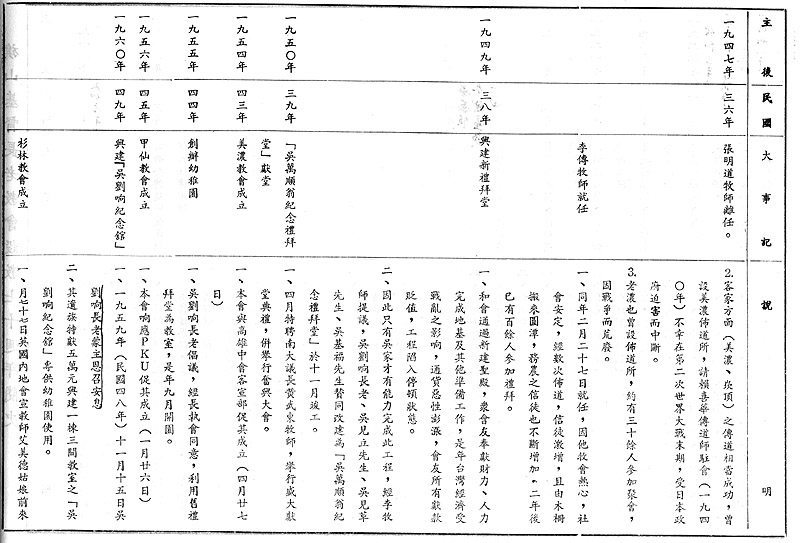 主後
民國
大事記
說明
一九四七年
三六年
張明道牧師離任。
2.客家方面（美濃、崁頂）之傳道相當成功，曾
設美濃佈道所，請賴喜華傳道師駐會（一九四
〇年）不幸在第二次世界大戰末期，受日本政
府迫害而中斷。
3.老濃也曾設佈道所，約有三十餘人參加聚會，
因戰爭而荒廢。
李傳牧師就任
一、同年二月二十七日就任，因他牧會熱心，社
會安定，經數次佈道，信徒激增，且由木柵
搬來圓潭，務農之信徒也不斷增加。二年後
已有百餘人參加禮拜。
一九四九年
三八年
興建新禮拜堂
一、和會通過新建聖殿，眾會友奉獻財力、人力
完成地基及其他準備工作，是年台灣經濟受
戰亂之影响，通貨惡性膨漲，會友所有獻款
貶值，工程陷入停頓狀態。
二、因此只有吳家才有能力完成此工程，經李牧
師提議，吳劉响長老、吳見立先生、吳見草
先生、吳基福先生贊同改建為「吳萬順翁紀
念禮拜堂」於十一月竣工。
一九五〇年
三九年
「吳萬順翁紀念禮拜
堂」獻堂
一、四月特聘南大議長黃武東牧師，舉行盛大獻
堂典禮，併舉行奮興大會。
一九五四年
四三年
美濃教會成立
一、本會與高雄中會客宣部促其成立（四月廿七
日）
一九五五年
四四年
創辦幼稚園
一、吳劉响長老倡議，經長執會同意，利用舊禮
拜堂為教室，是年九月開園。
一九五六年
四五年
甲仙教會成立
一、本會响應PKU促其成立（一月廿六日）
一九六〇年
四九年
興建「吳劉响紀念館」
一、一九五九年（民國四八年）十一月十五日吳
劉响長老蒙主恩召安息
二、其遺族特獻五萬元興建一棟三間教室之「吳
劉响紀念館」專供幼稚園使用。
杉林教會成立
一、月七十七日英國內地會宣教師艾美德姑娘前來